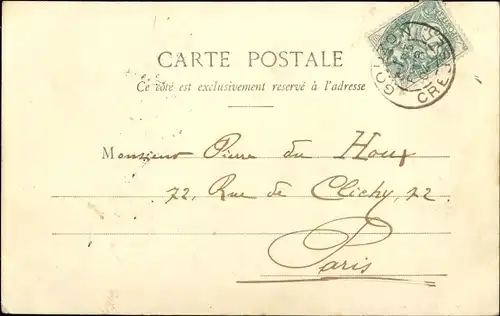 CARTE POSTALE
Ce côté est exclusivement reservé à l'adresse
Monsieur Pierre du Houx
72, Rue de Clichy, 72
Paris